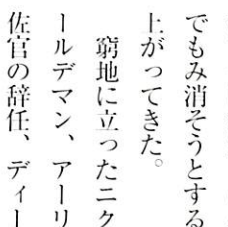 でもみ消そうとする
上がってきた。
窮地に立ったニク
ールデマン、アーリ
佐官の辞任、ディー